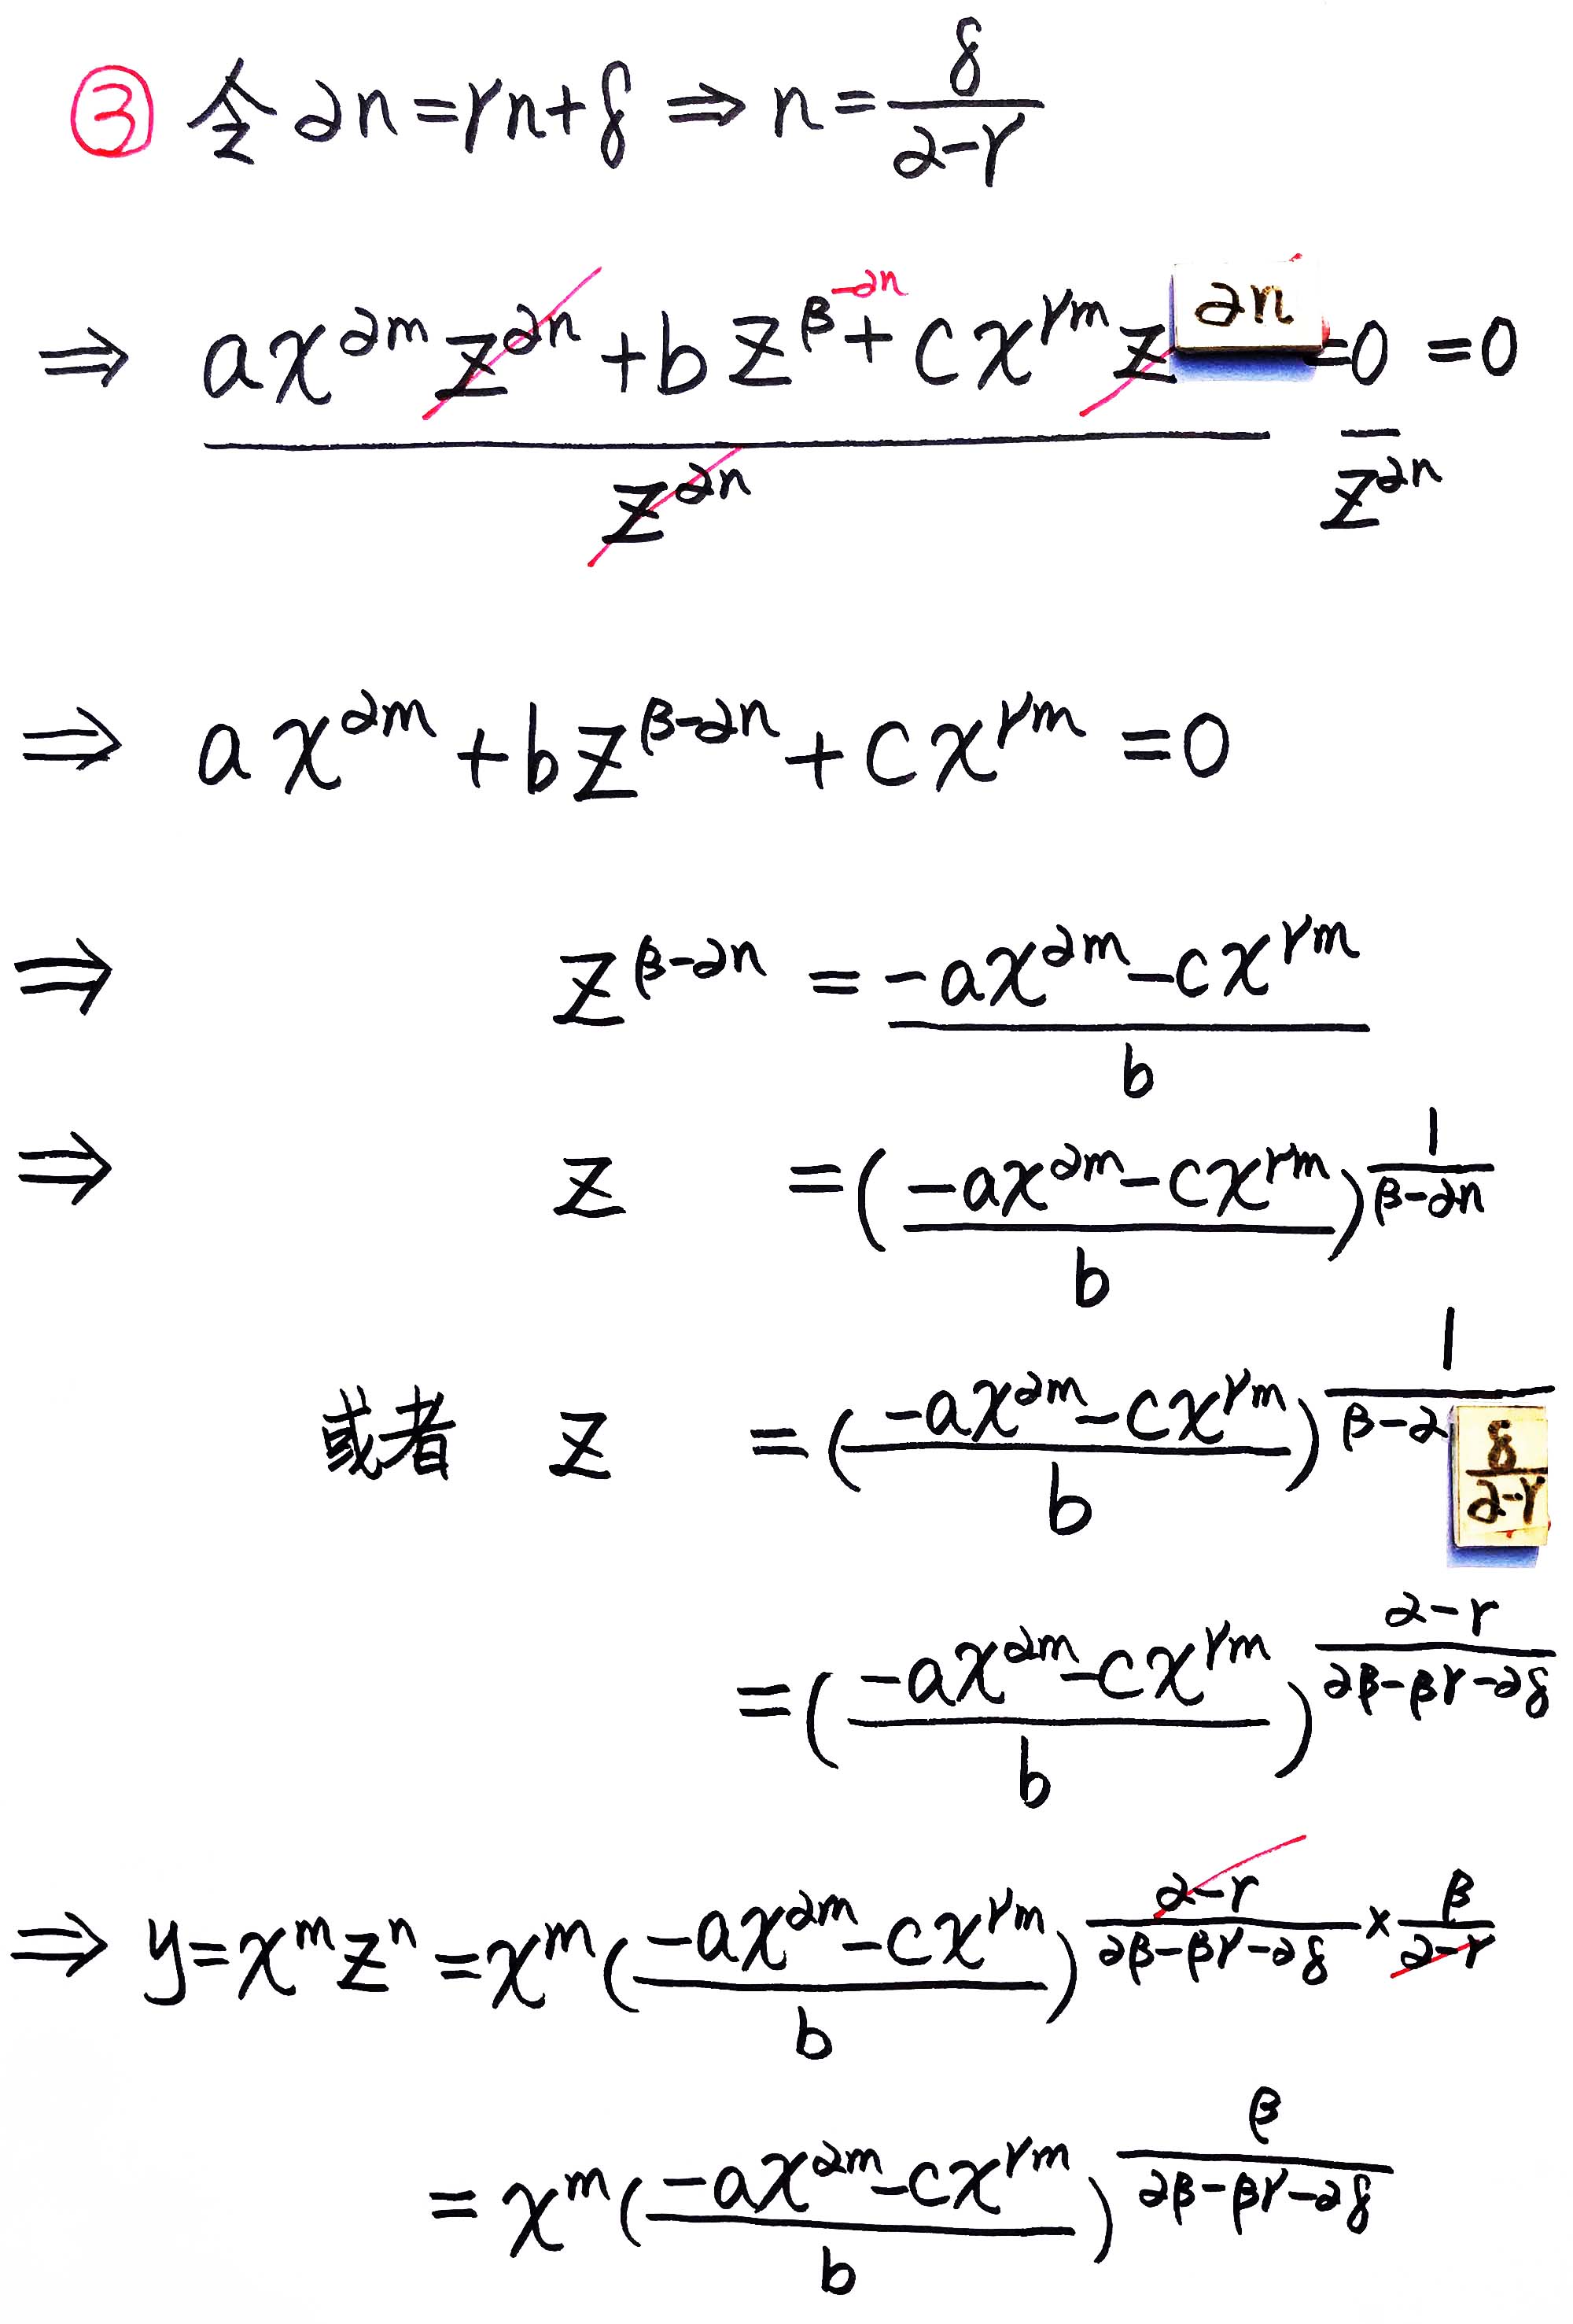 ③ 令 αn=γn+δ ⇒ n=δ/(α-γ)
⇒ (ax^{αm} z^{αn} + b z^{β-αn} + c x^{γm} z^{αn})/z^{αn} =0/z^{αn} =0
⇒ ax^{αm} + bz^{β-αn} + cx^{γm} =0
⇒ z^{β-αn} = (-ax^{αm}-cx^{γm})/b
⇒ z =((-ax^{αm}-cx^{γm})/b)^{1/(β-αn)}
或者 z =((-ax^{αm}-cx^{γm})/b)^{1/(β-α δ/(α-γ))}
=((-ax^{αm}-cx^{γm})/b)^{(α-γ)/(αβ-βγ-αδ)}
⇒ y=x^m z^n =x^m((-ax^{αm}-cx^{γm})/b)^{(α-γ)/(αβ-βγ-αδ) × β/(α-γ)}
= x^m((-ax^{αm}-cx^{γm})/b)^{β/(αβ-βγ-αδ)}